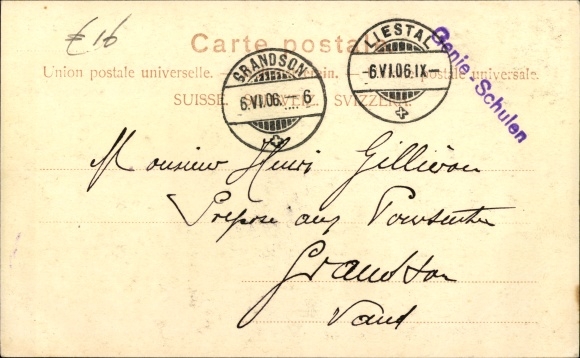 £16
Carte postale
Union postale universelle. — postale universale.
SUISSE. SVIZZERA.
GRANDSON
6.VI.06. 6
LIESTAL
6.VI.06.IX
Genie-Schulen
Monsieur Henri Gilliéron
Préposé aux Poursuites
Grandson
Vaud